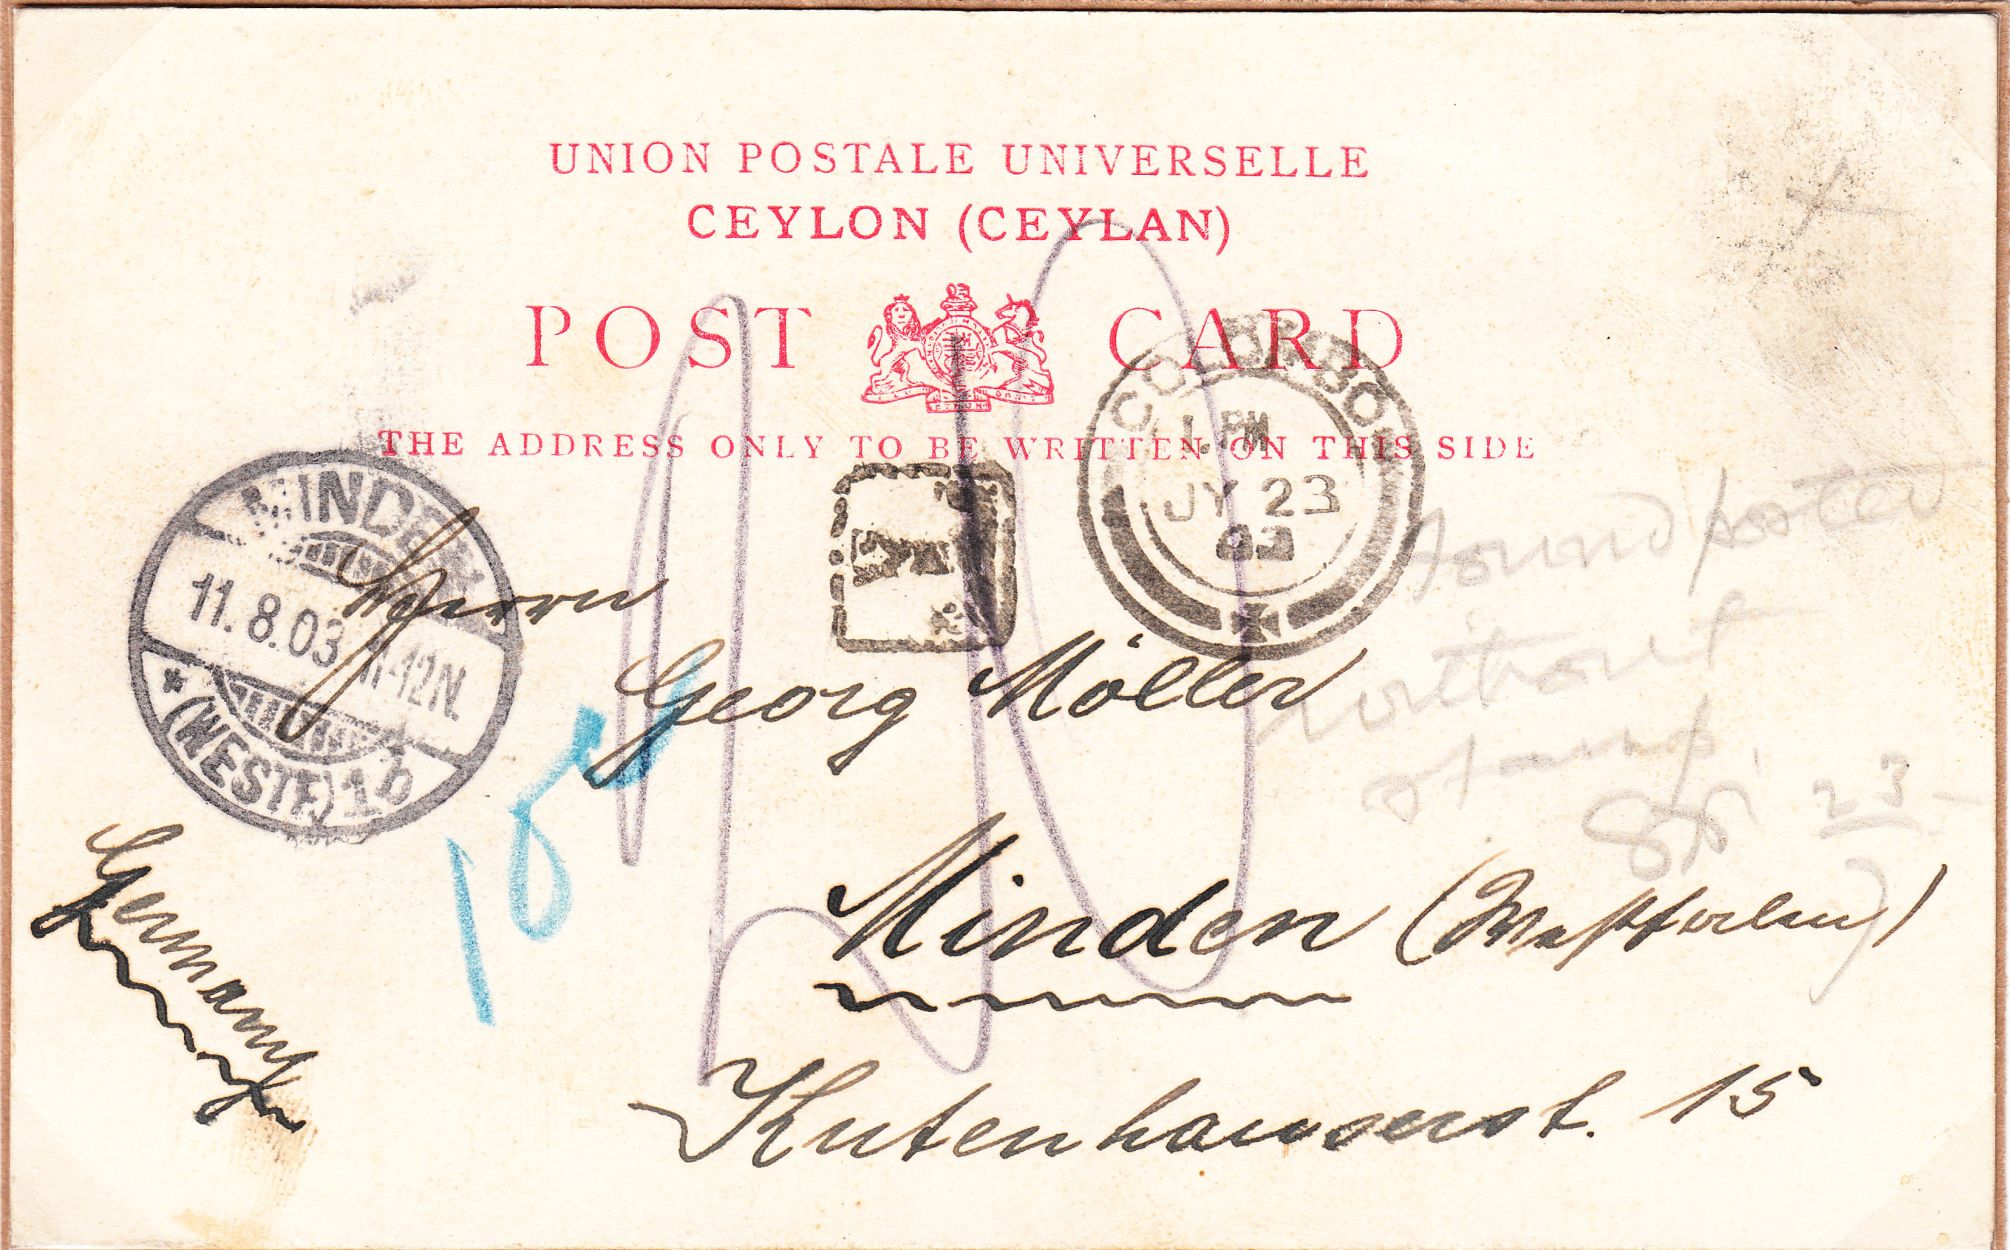 UNION POSTALE UNIVERSELLE
CEYLON (CEYLAN)
POST CARD
THE ADDRESS ONLY TO BE WRITTEN ON THIS SIDE
COLOMBO
1. PM
JY 23
03
T
MINDEN
11.8.03 11-12N.
* (WESTF) 1b
Herrn
Georg Möller
Minden (Westfalen)
Kutenhauserst. 15
Germany
10c
found posted
without
stamp
23